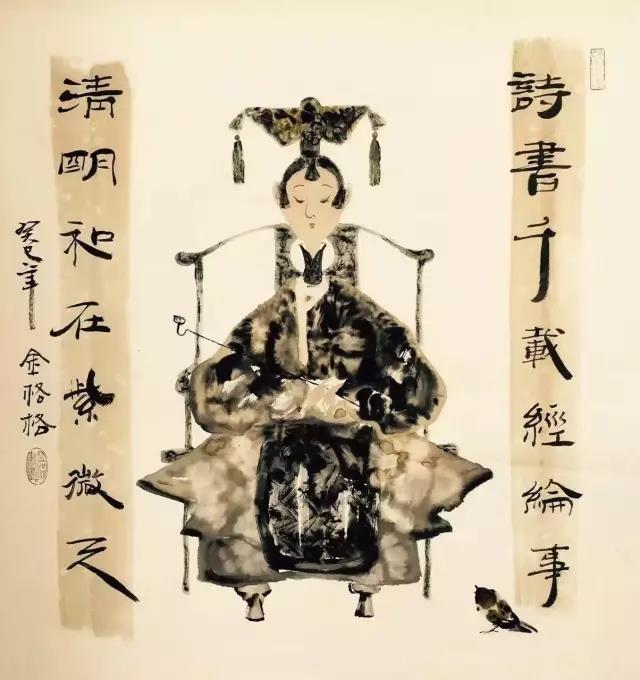 詩書千載經綸事
清明和在紫微天
癸巳年
金格格